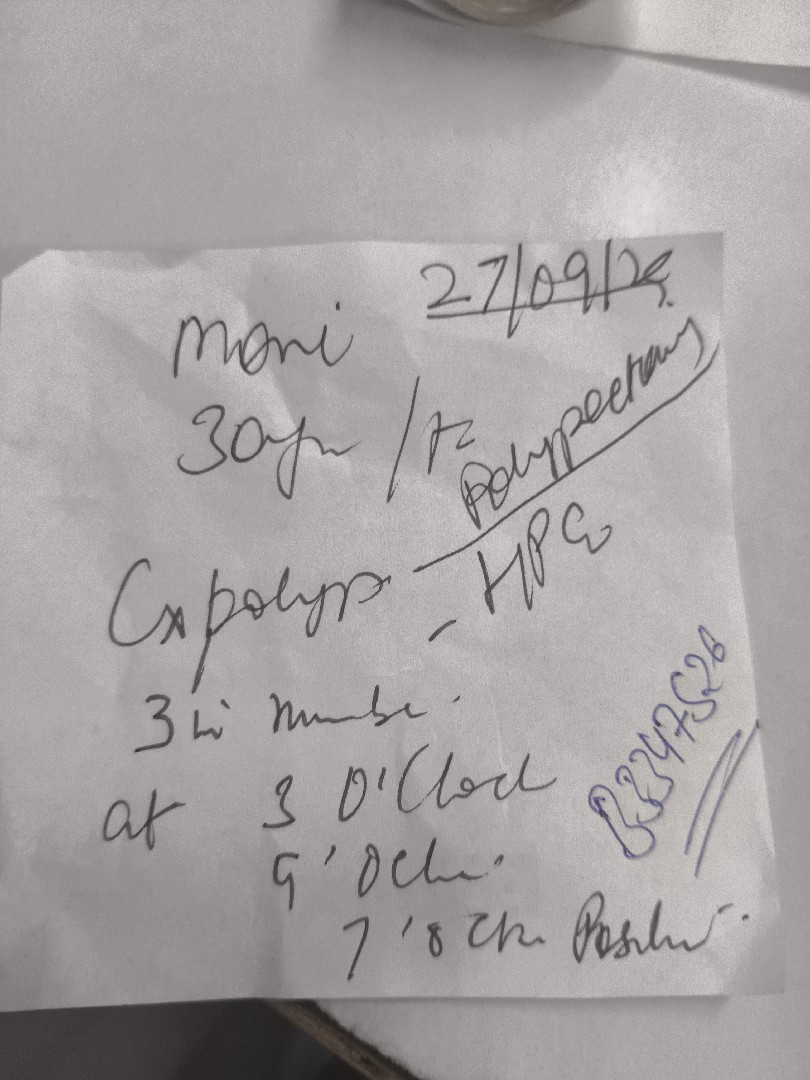 27/09/25
Moni
30yr / F
Cx polyp - Polypectomy
- HPE
3 in number.
at 3 O'Clock
9 'Oclo.
7 'o clk Position.
B3347526